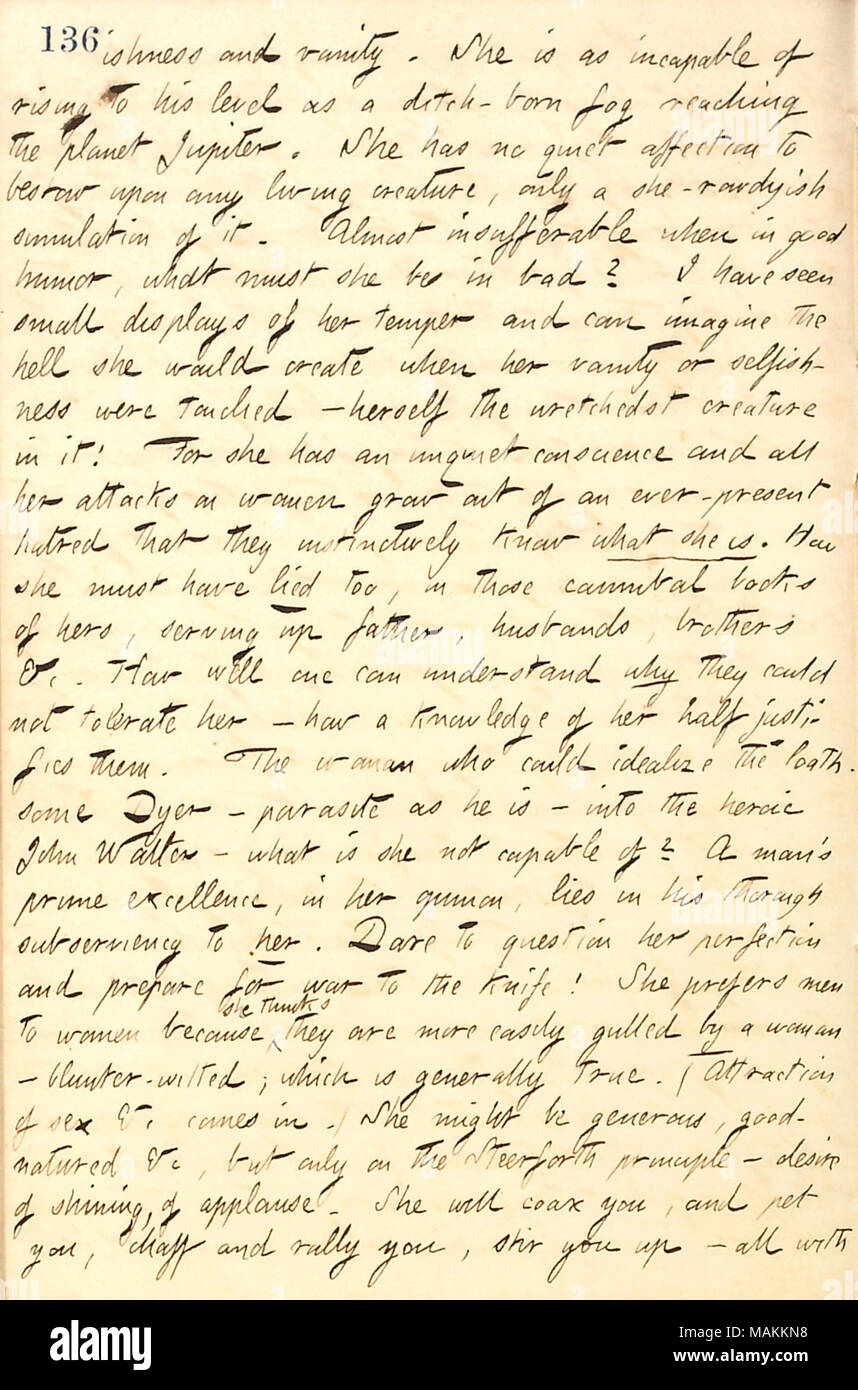 136
ishness and vanity. She is as incapable of
rising to his level as a ditch-born fog reaching
the planet Jupiter. She has no quiet affection to
bestow upon any living creature, only a she-rowdyish
simulation of it. Almost insufferable when in good
humor, what must she be in bad? I have seen
small displays of her temper and can imagine the
hell she would create when her vanity or selfish-
ness were touched - herself the wretchedst creature
in it! For she has an unquiet conscience and all
her attacks on women grow out of an ever-present
hatred that they instinctively know what she is. How
she must have lied too, in those cannibal books
of hers, serving up father, husbands, brothers
&c. How well one can understand why they could
not tolerate her - how a knowledge of her half justi-
fies them. The woman who could idealize the loath-
some Dyer - parasite as he is - into the heroic
John Walter - what is she not capable of? A man's
prime excellence, in her opinion, lies in his thorough
subserviency to her. Dare to question her perfection
and prepare for war to the knife! She prefers men
to women because she thinks they are more easily gulled by a woman
- blunter-witted; which is generally true. (Attraction
of sex &c comes in.) She might be generous, good-
natured &c, but only on the Steerforth principle - desire
of shining, of applause. She will coax you, and pet
you, chaff and rally you, stir you up - all with
alamy
Image ID: MAKKN8
www.alamy.com